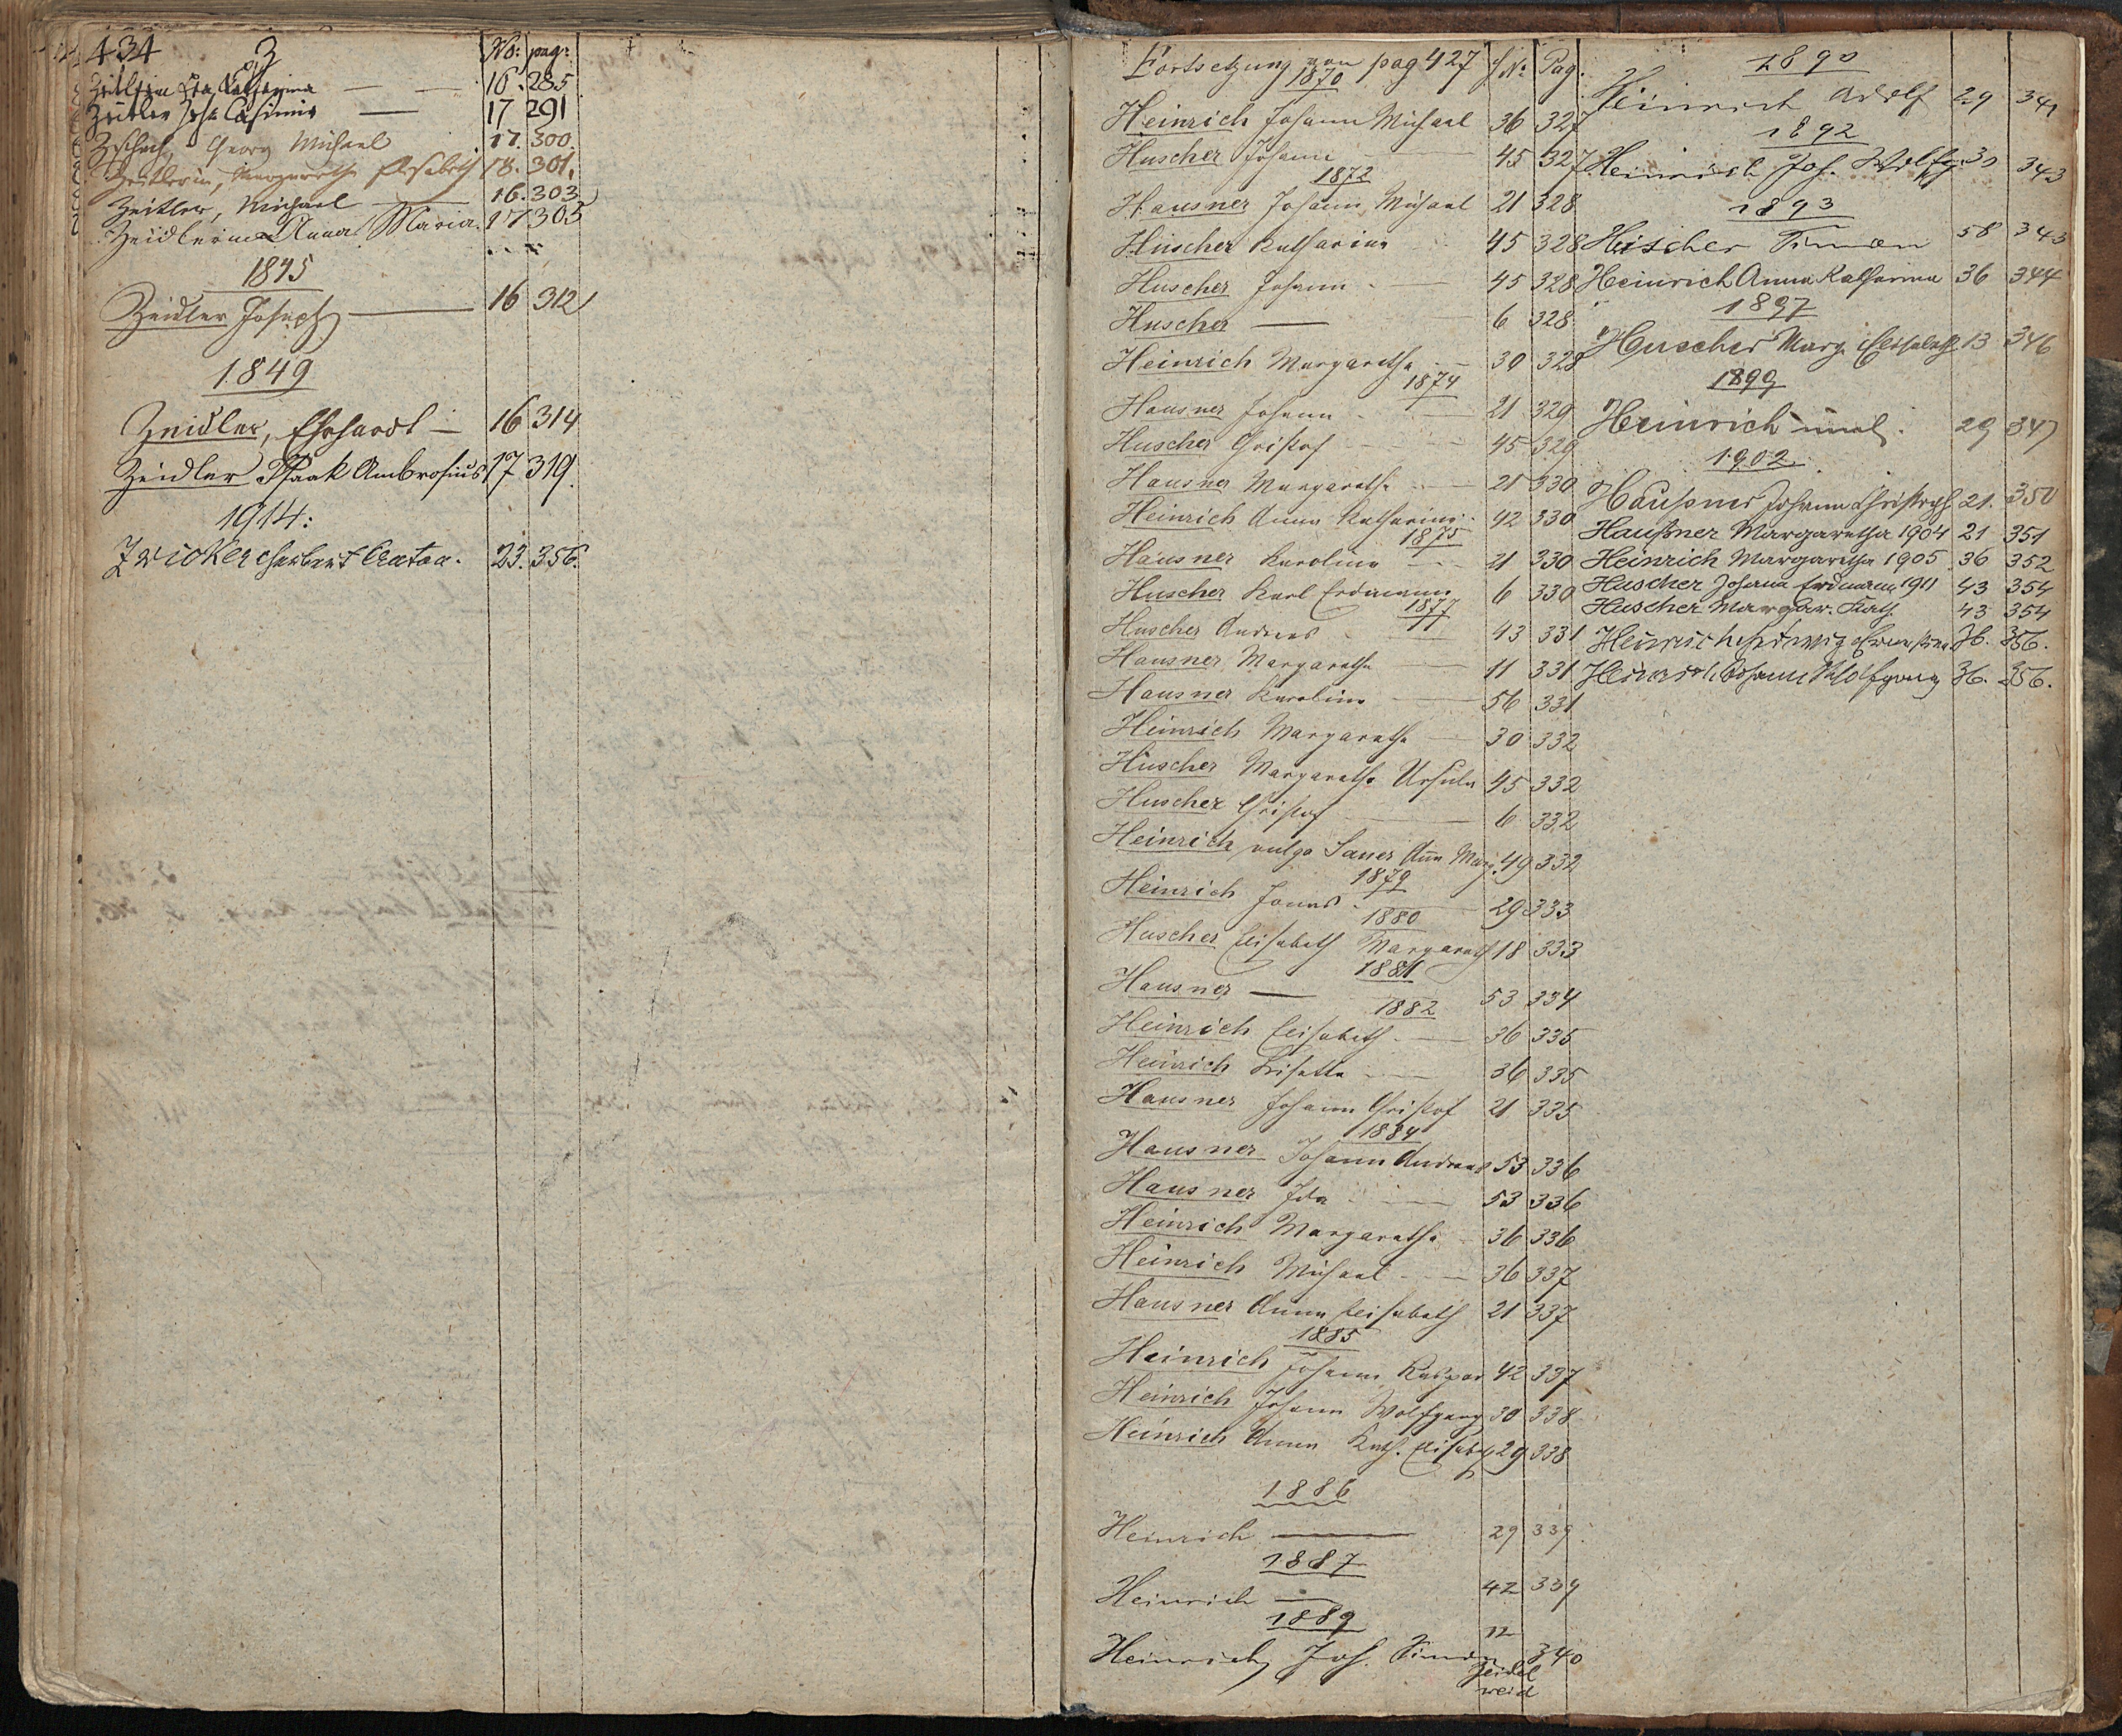 434
Z
No: pag:
Katharina — — 16. 285
Zeitler Joh. Casimir — 17 291
Georg Michael 17. 300.
Zeitlerin, Margaretha Elisabeth 18. 301.
Zeitler, Michael — 16. 303
Zeidlerin Anna Maria. 17 305
1845
Zeidler Joseph — 16 312
1849
Zeidler, Ehrhardt — 16 314
Zeidler Isaak Ambrosius 17 319.
1914:
Zwicker Herbert 23. 356.
Fortsetzung von pag 427 H№ Pag.
1870
Heinrich Johann Michael 36 327
Huscher Johann — 45 327
1872
Hausner Johann Michael 21 328
Huscher Katharina 45 328
Huscher Johann — 45 328
Huscher — 6 328
Heinrich Margaretha — 30 328
1874
Hausner Johann — 21 329
Huscher Christof — 45 329
Hausner Margaretha — 21 330
Heinrich Anna Katharina 42 330
1875
Hausner Karolina — 21 330
Huscher Karl Erdmann 6 330
1877
Huscher Andreas — 43 331
Hausner Margaretha — 11 331
Hausner Karolina — 56 331
Heinrich Margaretha — 30 332
Huscher Margaretha Ursula 45 332
Huscher Christof — 6 332
Heinrich vulgo Saner Ann Marg. 49 332
1879
Heinrich Jonas — 29 333
1880
Huscher Elisabeth Margareth 18 333
1881
Hausner — 53 334
1882
Heinrich Elisabeth — 36 335
Heinrich Lisetta — 36 335
Hausner Johann Christof 21 335
1884
Hausner Johann Andreas 53 336
Hausner Ida — 53 336
Heinrich Margaretha — 36 336
Heinrich Michael — 36 337
Hausner Anna Elisabeth 21 337
1885
Heinrich Johann Kaspar 42 337
Heinrich Johann Wolfgang 30 338
Heinrich Anna Kath. Elisabeth 29 338
1886
Heinrich — 29 339.
1887
Heinrich — 42 339
1889
Heinrich Joh. Simon 12 340
Zeidel
weid
1890
Heinrich Adolf 29 341
1892
Heinrich Joh. Wolfg. 30 343
1893
Hüscher Simon 58 343
Heinrich Anna Katharina 36 344
1897
Huscher Marg. Elisabeth 13 346
1899
29 347
Heinrich
1902
Haußner Johann Christoph 21. 350
Haußner Margaretha 1904 21 351
Heinrich Margaretha 1905 36 352
Huscher Johann Erdmann 1911 43 354
Huscher Margar. Kath. 43 354
Heinrich Hedwig 36. 356.
Heinrich Johann Wolfgang 36. 356.